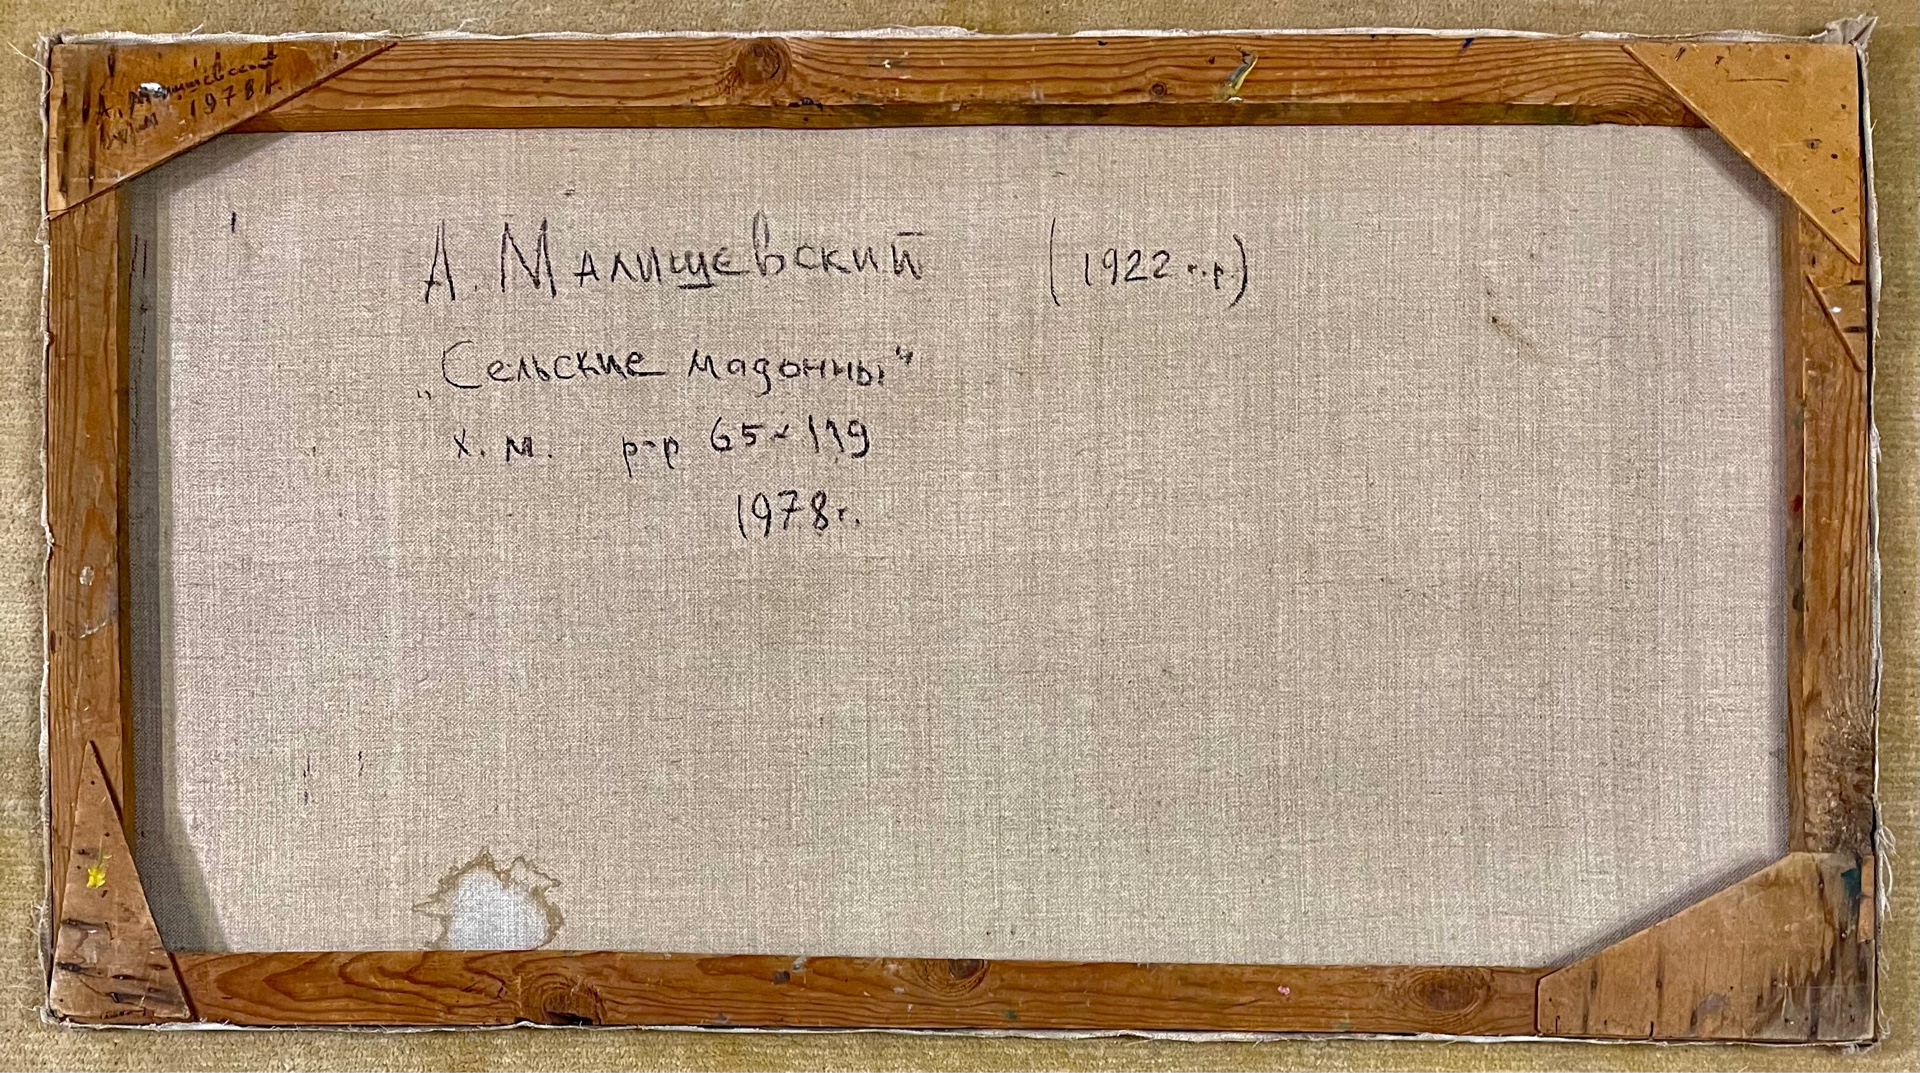 А. Малишевский
х.м. 1978 г.
А. Малишевский (1922 г.р.)
„Сельские мадонны“
х. м. р-р 65×119
1978г.